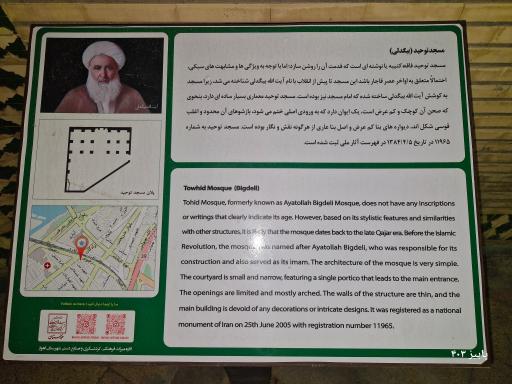 مسجد توحید (بیگدلی)
مسجد توحید فاقد کتیبه یا نوشته ای است که قدمت آن را روشن سازد؛ اما با توجه به ویژگی ها و مشابهت های سبکی،
احتمالاً متعلق به اواخر عصر قاجار باشد این مسجد تا پیش از انقلاب با نام آیت الله بیگدلی شناخته می شد، زیرا مسجد
به کوشش آیت الله بیگدلی ساخته شده که امام مسجد نیز بوده است. مسجد توحید معماری بسیار ساده ای دارد، بنحوی
که صحن آن کوچک و کم عرض است، یک ایوان دارد که به ورودی اصلی ختم می شود، بازشوهای آن محدود و اغلب
قوسی شکل اند، دیواره های بنا کم عرض و اصل بنا عاری از هرگونه نقش و نگار بوده است. مسجد توحید به شماره
۱۱۹۶۵ در تاریخ ۱۳۸۴/۴/۵ در فهرست آثار ملی ثبت شده است.
پلان مسجد توحید
Towhid Mosque (Bigdeli)
Tohid Mosque, formerly known as Ayatollah Bigdeli Mosque, does not have any inscriptions
or writings that clearly indicate its age. However, based on its stylistic features and similarities
with other structures, it is likely that the mosque dates back to the late Qajar era. Before the Islamic
Revolution, the mosque was named after Ayatollah Bigdeli, who was responsible for its
construction and also served as its imam. The architecture of the mosque is very simple.
The courtyard is small and narrow, featuring a single portico that leads to the main entrance.
The openings are limited and mostly arched. The walls of the structure are thin, and the
main building is devoid of any decorations or intricate designs. It was registered as a national
monument of Iran on 25th June 2005 with registration number 11965.
اداره میراث فرهنگی، گردشگری و صنایع دستی شهرستان اهواز
پاییز ۴۰۳